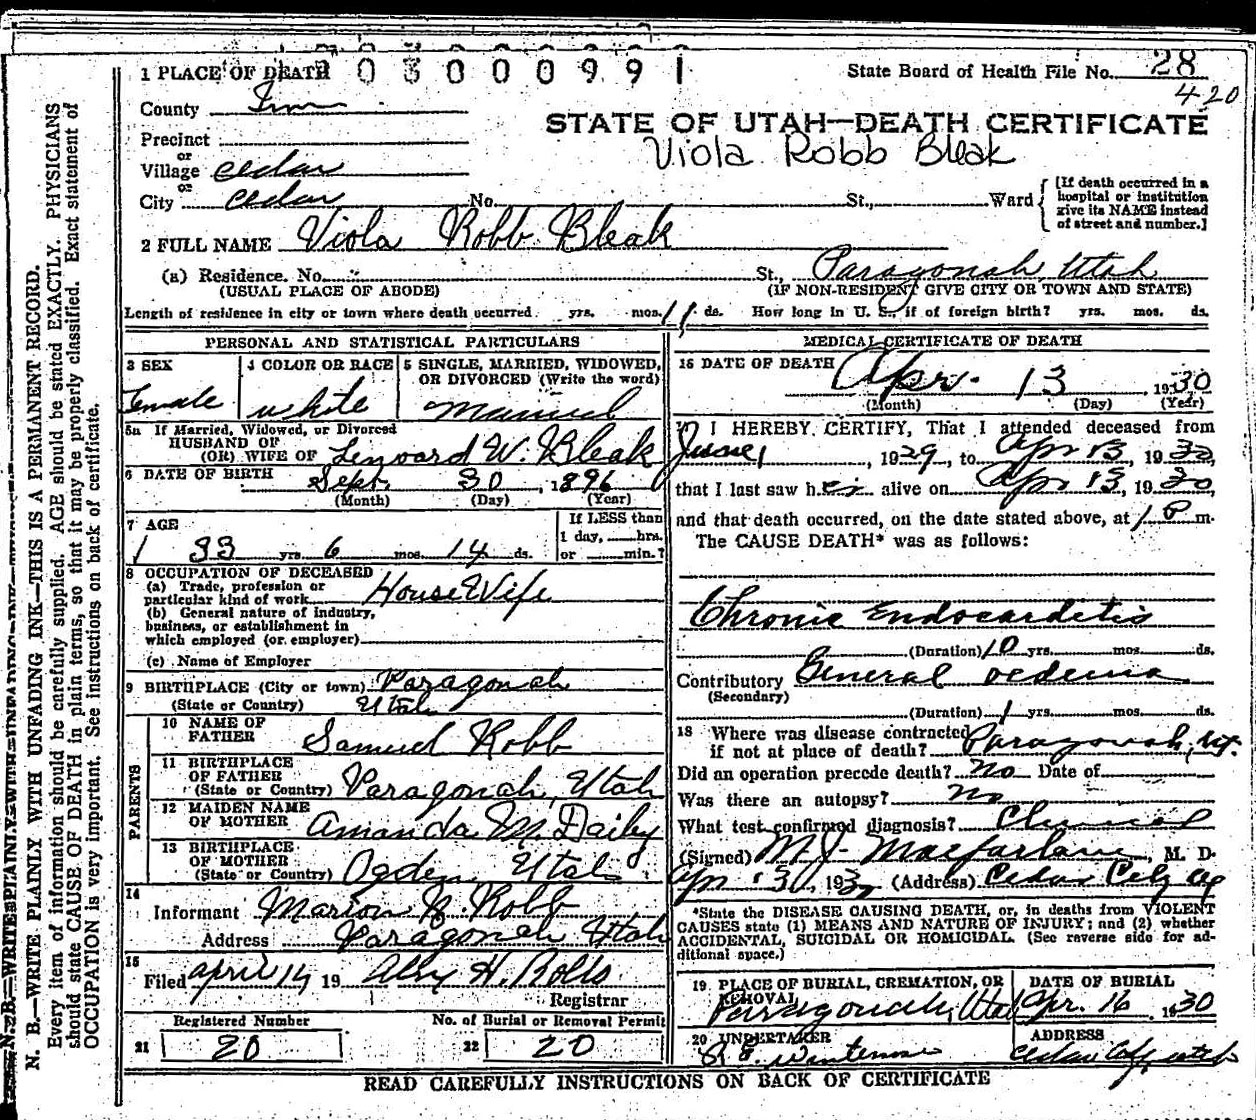 1 PLACE OF DEATH
0 3 0 0 0 9 9 1
State Board of Health File No. 28
420
County
STATE OF UTAH—DEATH CERTIFICATE
Viola Robb Bleak
Precinct
or
Village Cedar
or
City Cedar No. St., Ward
[If death occurred in a
hospital or institution
give its NAME instead
of street and number.]
2 FULL NAME Viola Robb Bleak
(a) Residence. No. St., Paragonah Utah
(USUAL PLACE OF ABODE) (IF NON-RESIDENT GIVE CITY OR TOWN AND STATE)
Length of residence in city or town where death occurred. yrs. mos. 11 ds. How long in U. S., if of foreign birth? yrs. mos. ds.
PERSONAL AND STATISTICAL PARTICULARS
3 SEX
Female
4 COLOR OR RACE
white
5 SINGLE, MARRIED, WIDOWED,
OR DIVORCED (Write the word)
Married
5a If Married, Widowed, or Divorced
HUSBAND OF
(OR) WIFE OF Lenward W. Bleak
6 DATE OF BIRTH Sept. 30, 1896
(Month) (Day) (Year)
7 AGE
33 yrs 6 mos. 14 ds.
If LESS than
1 day, hrs.
or min.?
8 OCCUPATION OF DECEASED
(a) Trade, profession or
particular kind of work HouseWife
(b) General nature of industry,
business, or establishment in
which employed (or employer)
(c) Name of Employer
9 BIRTHPLACE (City or town) Paragonah
(State or Country) Utah
PARENTS
10 NAME OF
FATHER Samuel Robb
11 BIRTHPLACE
OF FATHER
(State or Country) Paragonah, Utah
12 MAIDEN NAME
OF MOTHER Amanda M. Dailey
13 BIRTHPLACE
OF MOTHER
(State or Country) Ogden Utah
14
Informant Marion Robb
Address Paragonah Utah
15
Filed April 14 19 H. Rollo
Registrar
Registered Number
21 20
No. of Burial or Removal Permit
22 20
MEDICAL CERTIFICATE OF DEATH
16 DATE OF DEATH
Apr. 13 1930
(Month) (Day) (Year)
17 I HEREBY CERTIFY, That I attended deceased from
June 1, 1929, to Apr 13 1930,
that I last saw her alive on Apr 13, 1930,
and that death occurred, on the date stated above, at 1 P m.
The CAUSE DEATH* was as follows:
Chronic Endocarditis
(Duration) 10 yrs. mos. ds.
Contributory General oedema
(Secondary)
(Duration) 1 yrs. mos. ds.
18 Where was disease contracted
if not at place of death? Paragonah, Ut.
Did an operation precede death? No Date of
Was there an autopsy? No
What test confirmed diagnosis? Clinical
(Signed) M. J. Macfarlane, M. D.
Apr 30, 1930 (Address) Cedar City
*State the DISEASE CAUSING DEATH, or, in deaths from VIOLENT
CAUSES state (1) MEANS AND NATURE OF INJURY; and (2) whether
ACCIDENTAL, SUICIDAL OR HOMICIDAL. (See reverse side for ad-
ditional space.)
19 PLACE OF BURIAL, CREMATION, OR
REMOVAL
Paragonah, Utah
DATE OF BURIAL
Apr. 16 1930
20 UNDERTAKER
ADDRESS
Cedar City, Utah
READ CAREFULLY INSTRUCTIONS ON BACK OF CERTIFICATE
N. B.—WRITE PLAINLY WITH UNFADING INK—THIS IS A PERMANENT RECORD.
Every item of information should be carefully supplied. AGE should be stated EXACTLY. PHYSICIANS
should state CAUSE OF DEATH in plain terms, so that it may be properly classified. Exact statement of
OCCUPATION is very important. See Instructions on back of certificate.